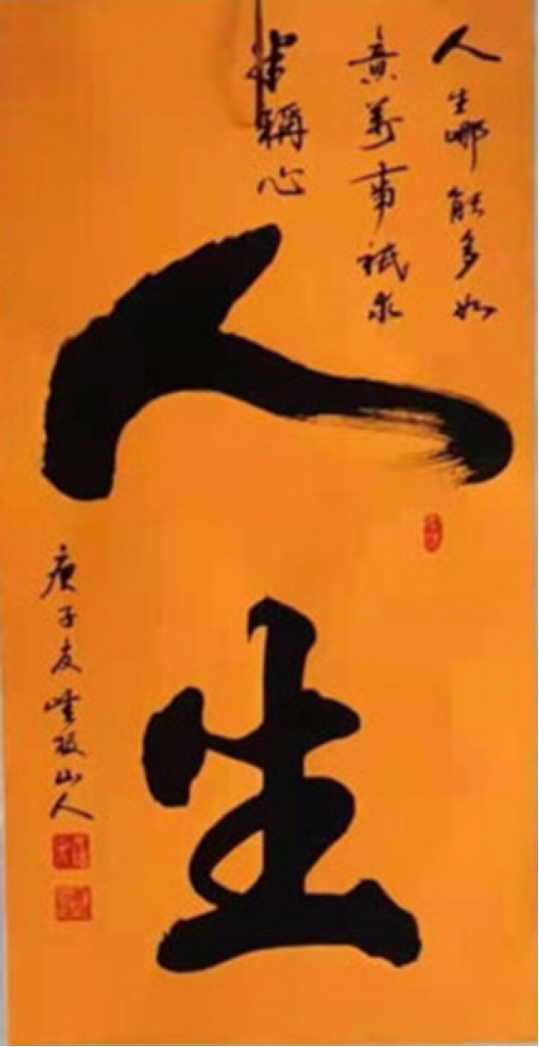 人生哪能多如
意万事祗求
半稱心
人生
庚子友
山人